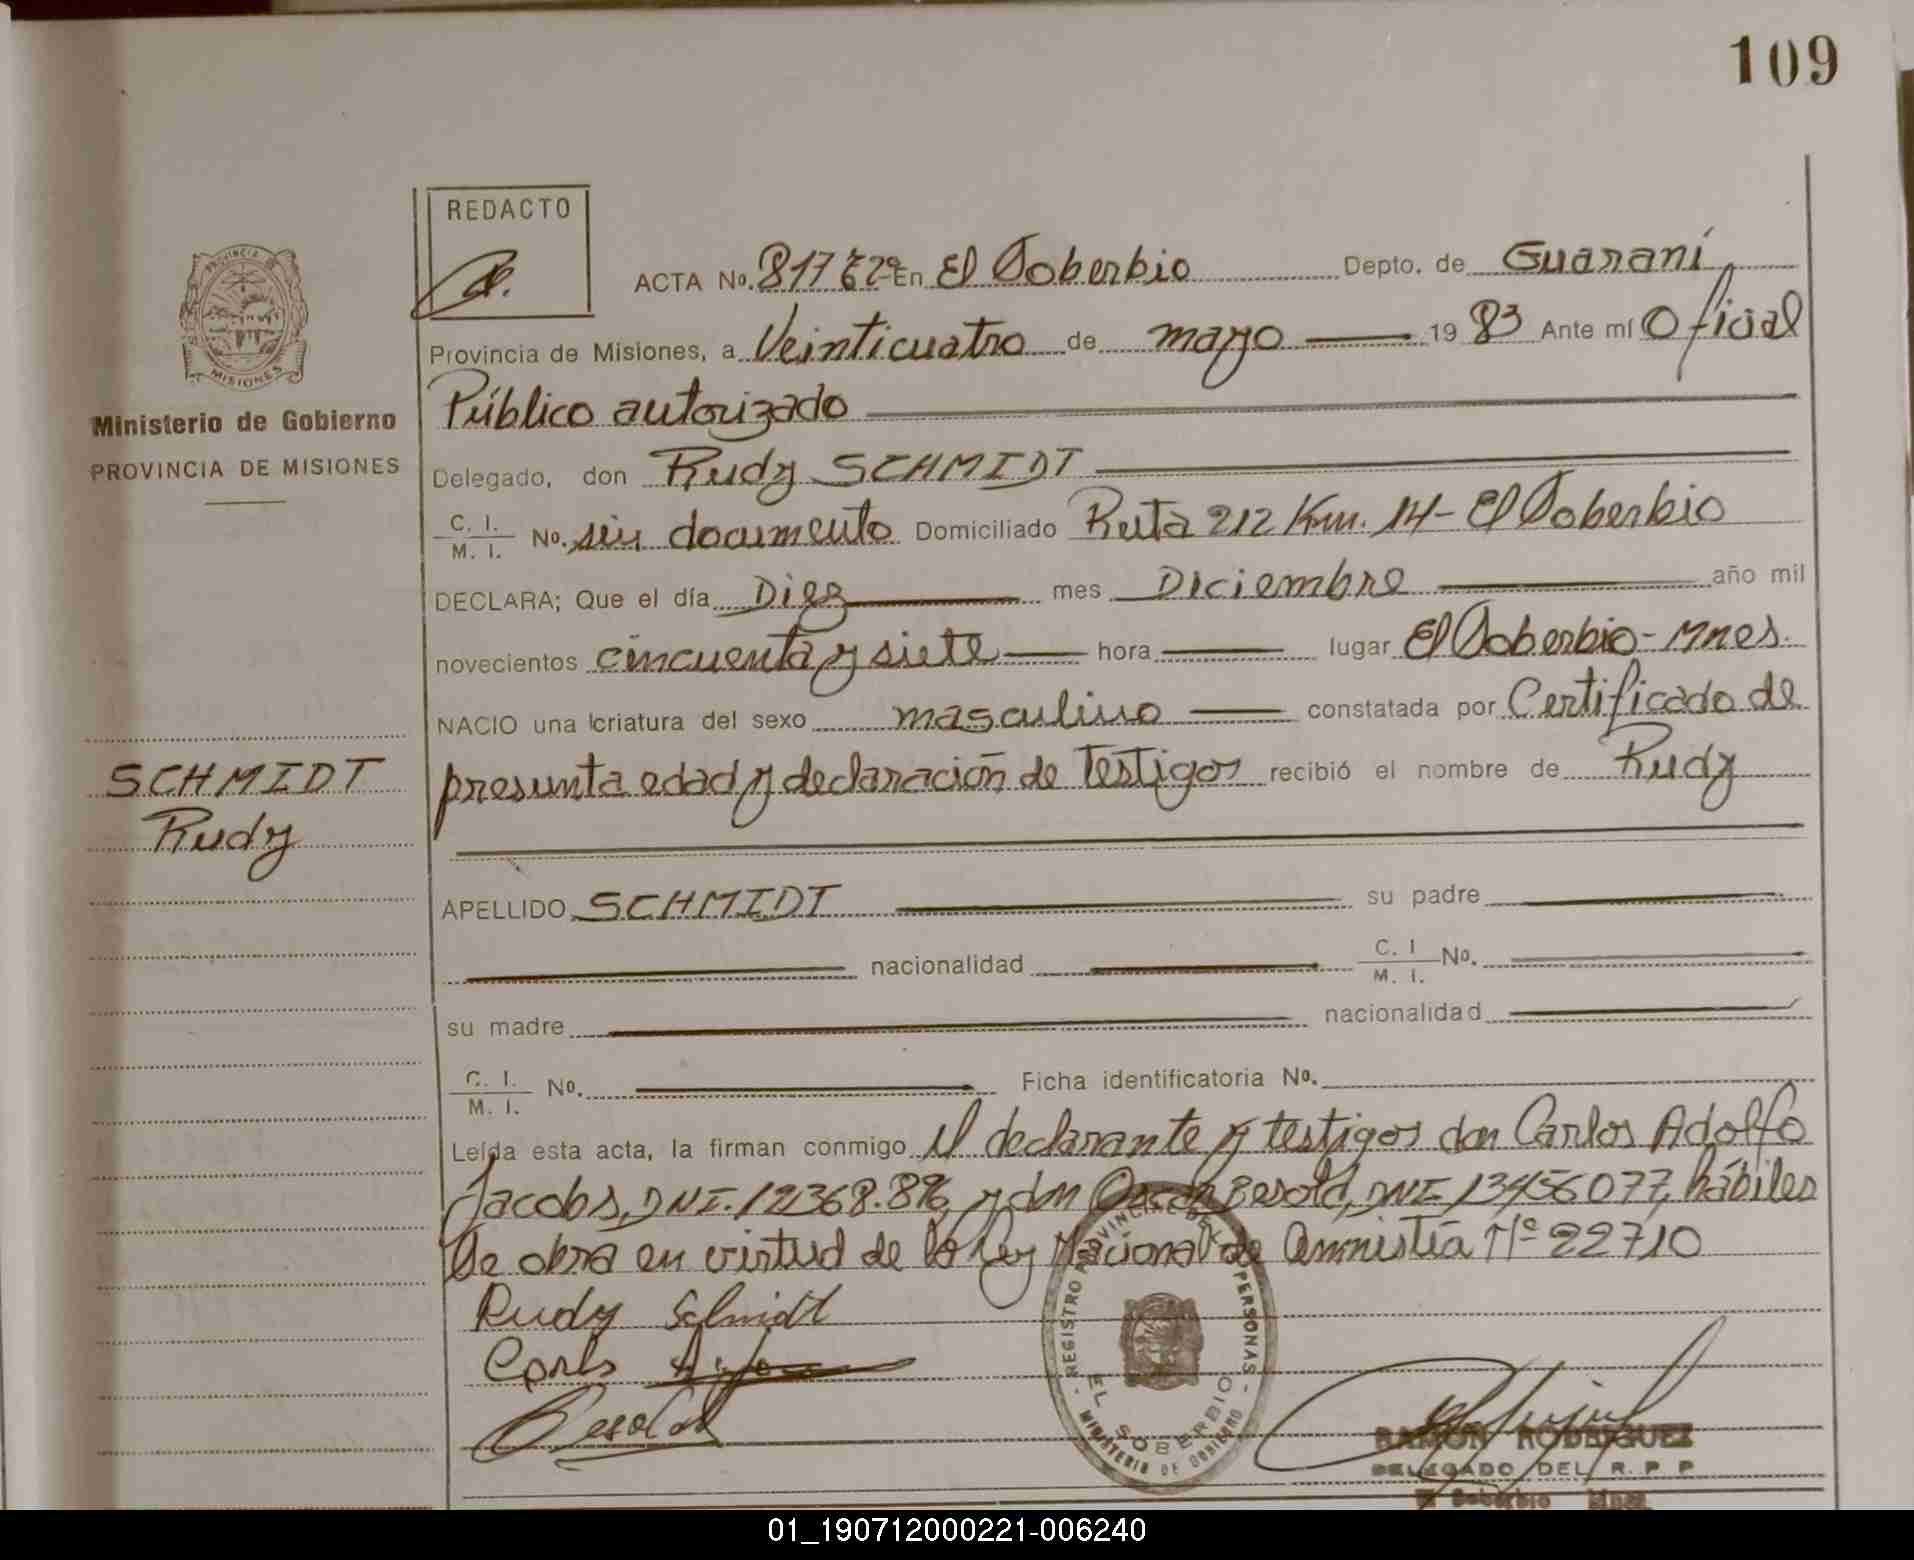 109
REDACTO
PROVINCIA DE
MISIONES
ACTA No. 817 En El Soberbio Depto. de Guaraní,
Provincia de Misiones, a Veinticuatro de mayo 19 83 Ante mí Oficial
Público autorizado
Ministerio de Gobierno
PROVINCIA DE MISIONES
Delegado, don Rudy SCHMIDT
C. I.
M. I. No. sin documento Domiciliado Ruta 212 Km. 14- El Soberbio
DECLARA; Que el día Diez mes Diciembre año mil
novecientos cincuenta y siete hora lugar El Soberbio-Mnes.
NACIO una criatura del sexo masculino constatada por Certificado de
SCHMIDT
Rudy
presunta edad y declaración de Testigos recibió el nombre de Rudy
APELLIDO SCHMIDT su padre
nacionalidad C. I
M. I. No.
su madre nacionalidad
C. I.
M. I. No. Ficha identificatoria No.
Leída esta acta, la firman conmigo el declarante y testigos don Carlos Adolfo
Jacobs, DNI. 12368.896, y don Oscar Besold, DNI 13456077, hábiles
Se obra en virtud de la Ley Nacional de Amnistía Nº 22710
Rudy Schmidt
Carlos
Besold
REGISTRO PROVINCIAL DE PERSONAS
EL SOBERBIO
MINISTERIO DE GOBIERNO
RAMON RODRIGUEZ
DELEGADO DEL R. P P
El Soberbio Mnes.
01_190712000221-006240